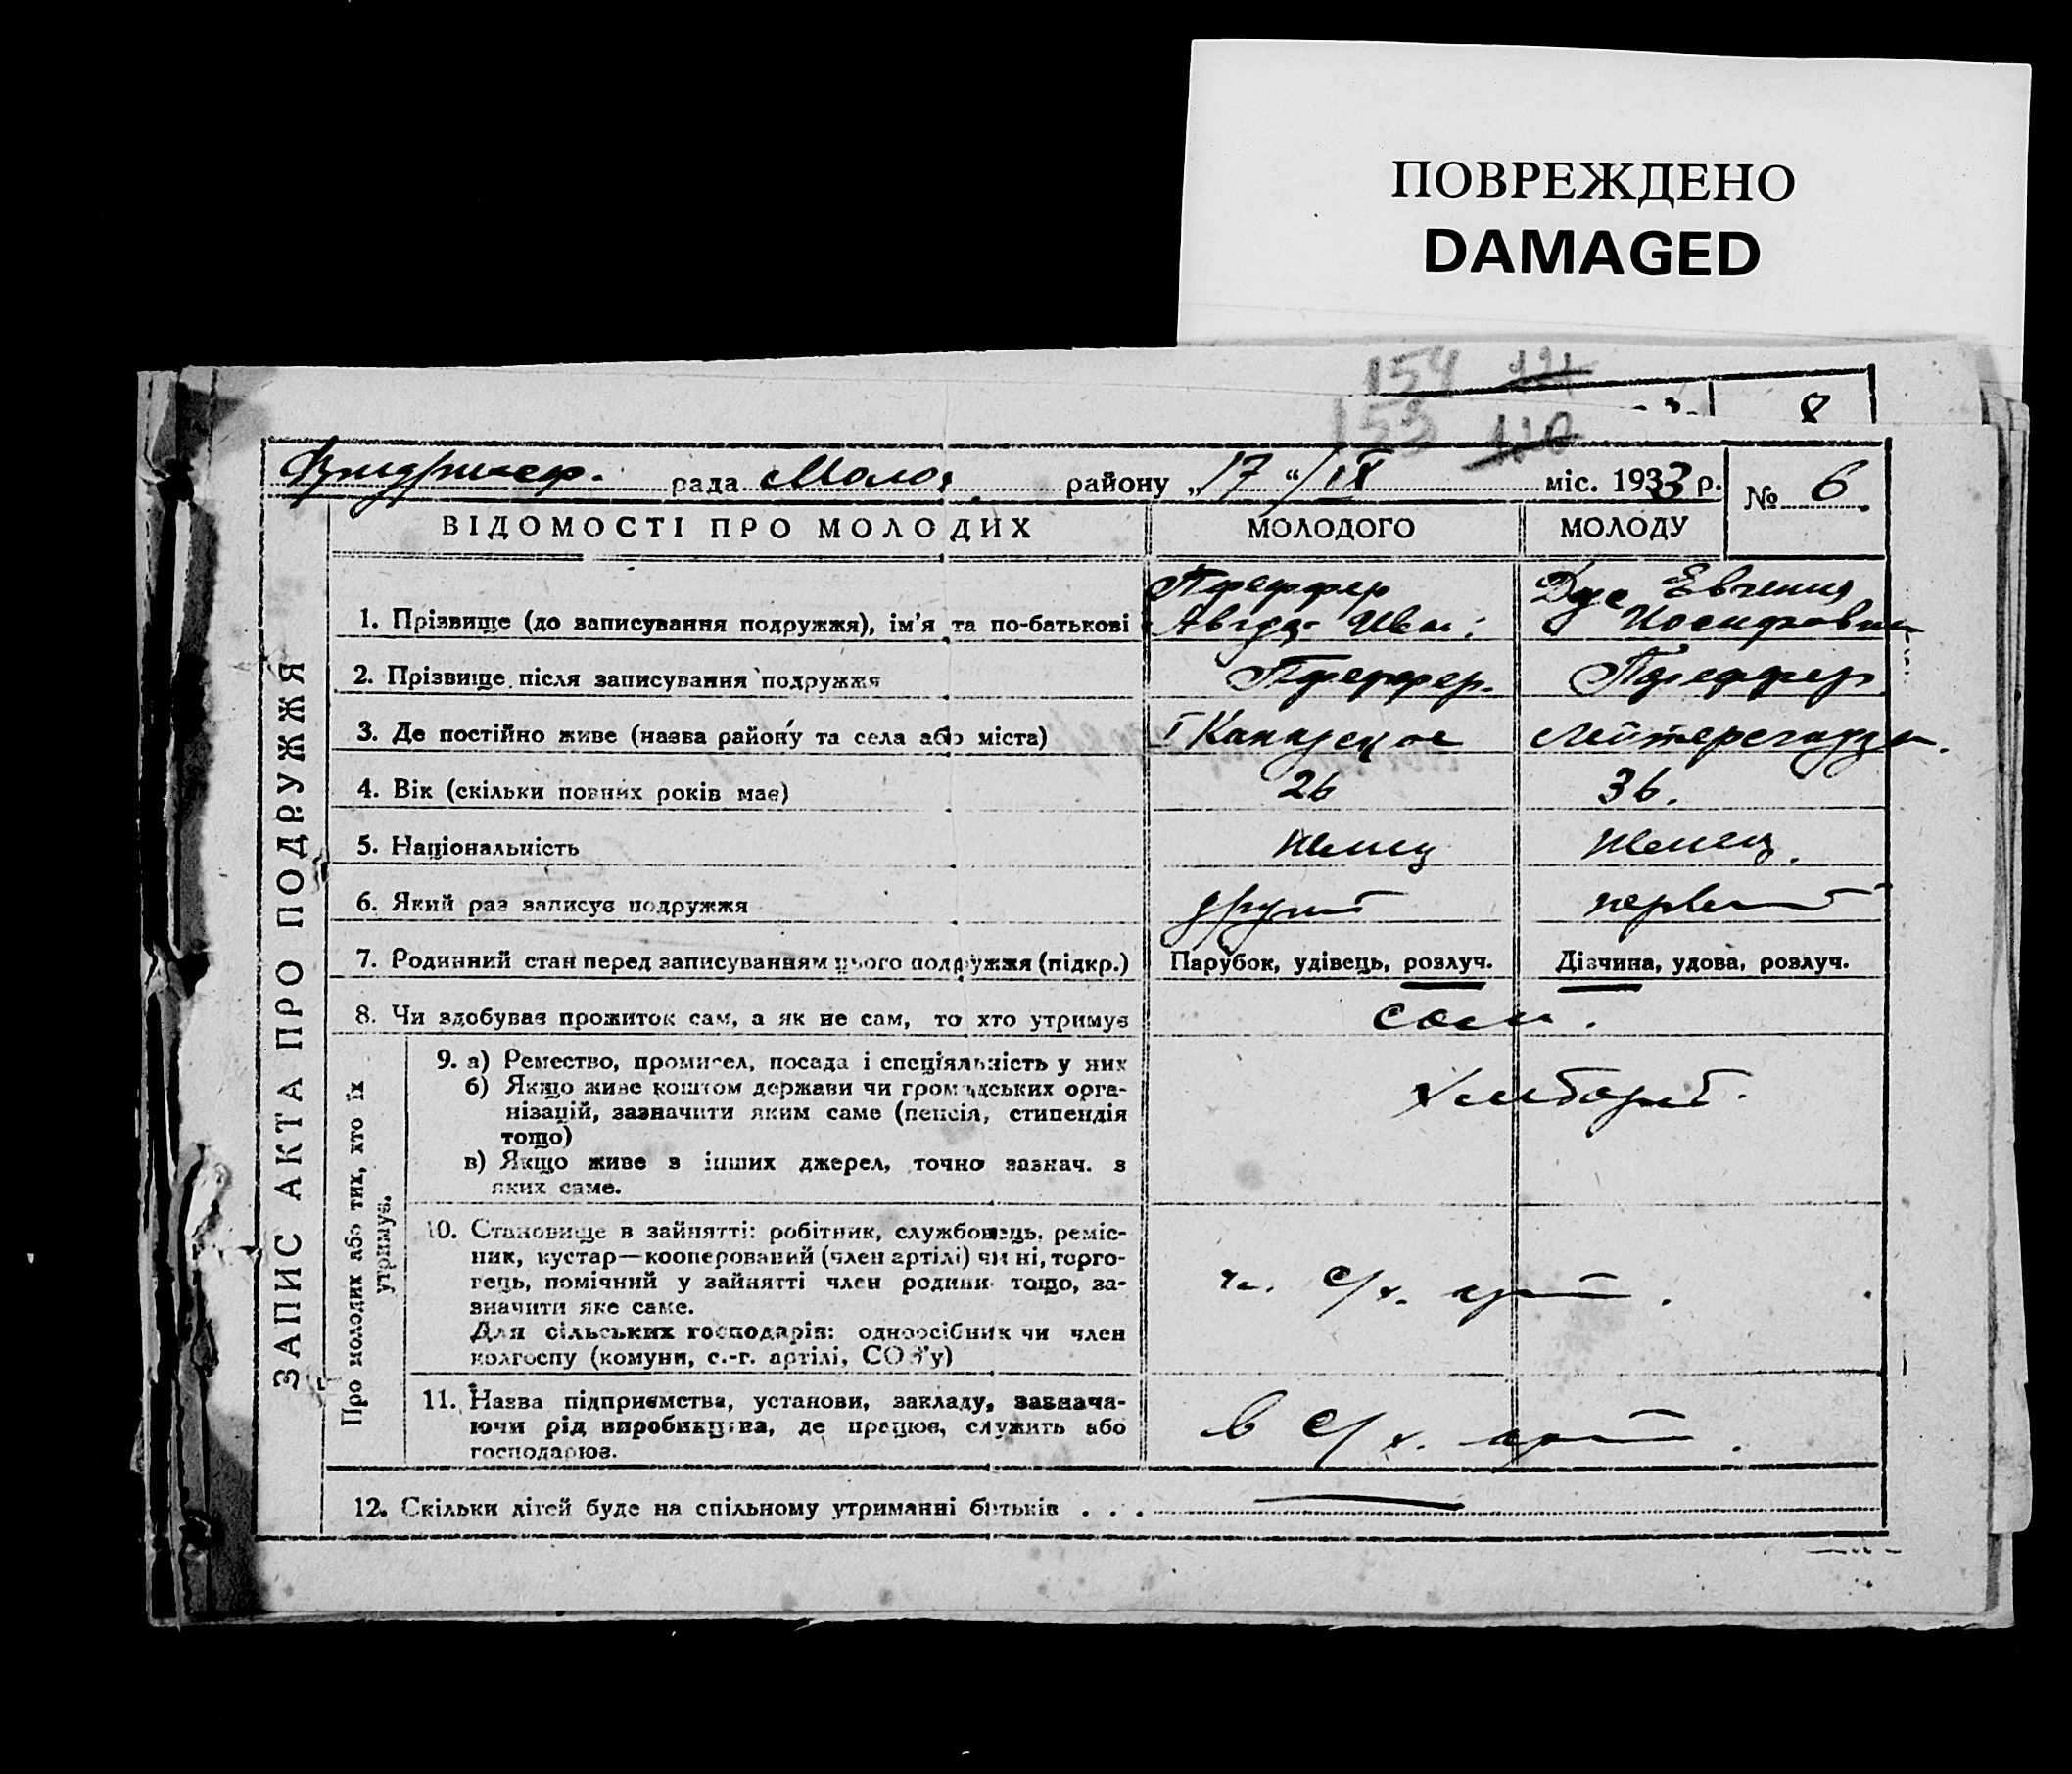 ПОВРЕЖДЕНО
DAMAGED
154 121
153 120
8
рада Моло. району „17“ / IX міс. 1933 р. № 6
ЗАПИС АКТА ПРО ПОДРУЖЖЯ
ВІДОМОСТІ ПРО МОЛОДИХ МОЛОДОГО МОЛОДУ
Пфеффер Евгения
1. Прізвище (до записування подружжя), ім'я та по-батькові Иосифовна
2. Прізвище після записування подружжя Пфеффер. Пфеффер
3. Де постійно живе (назва району та села або міста)
4. Вік (скільки повних років має) 26 36.
5. Національність немец немец.
6. Який раз записує подружжя другий первый
7. Родинний стан перед записуванням цього подружжя (підкр.) Парубок, удівець, розлуч. Дівчина, удова, розлуч.
8. Чи здобував прожиток сам, а як не сам, то хто утримує сами.
Про молодих або тих, хто їх утримує.
9. а) Ремество, промисел, посада і спеціяльність у них
б) Якщо живе коштом держави чи громадських орга-
нізацій, зазначити яким саме (пенсія, стипендія
тощо)
в) Якщо живе з інших джерел, точно зазнач. з
яких саме.
10. Становище в зайнятті: робітник, службовець, реміс-
ник, кустар—кооперований (член артілі) чи ні, торго-
вець, помічний у зайнятті член родини тощо, за-
значити яке саме.
Для сільських господарів: одноосібник чи член
колгоспу (комуни, с.-г. артілі, СОЗ'у)
ч. с/х. арт.
11. Назва підприємства, установи, закладу, зазнача-
ючи рід виробництва, де працює, служить або
господарює.
в с/х. арт.
12. Скільки дітей буде на спільному утриманні батьків . . .